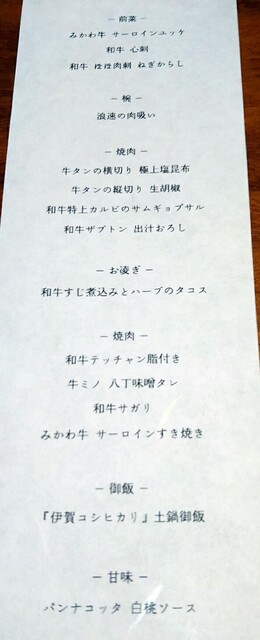 − 前菜 −
みかわ牛 サーロインユッケ
和牛 心刺
和牛 ほほ肉刺 ねぎからし
− 椀 −
浪速の肉吸い
− 焼肉 −
牛タンの横切り 極上塩昆布
牛タンの縦切り 生胡椒
和牛特上カルビのサムギョプサル
和牛ザブトン 出汁おろし
− お凌ぎ −
和牛すじ煮込みとハーブのタコス
− 焼肉 −
和牛テッチャン脂付き
牛ミノ 八丁味噌タレ
和牛サガリ
みかわ牛 サーロインすき焼き
− 御飯 −
『伊賀コシヒカリ』土鍋御飯
− 甘味 −
パンナコッタ 白桃ソース